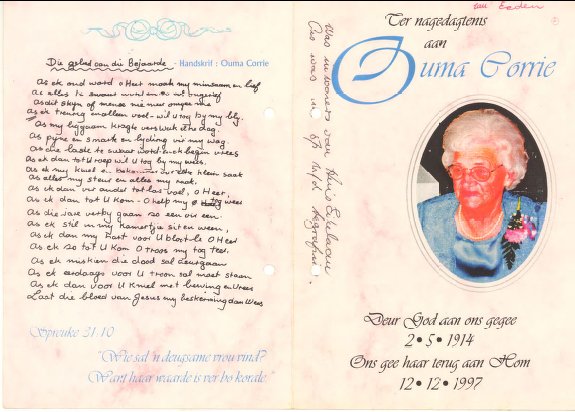 Die gebed van die Bejaarde - Handskrif : Ouma Corrie
As ek oud word o Heer maak my minsaam en lief
As alles te swaar word en
As dit skyn of mense nie meer omgee nie
As ek treurig en alleen voel - wil U tog by my bly.
As my liggaam kragte verswak elke dag.
As pyne en smarte en lyding vir my wag.
As die laste te swaar word en ek begin vrees
As ek dan tot U roep wil U tog by my wees.
As ek my kniel en elke klein saak
As alles my steur en alles my raak.
As ek dan ver ander tot las voel, O Heer,
As ek dan tot U Kom - O help my wees
As die jare verby gaan so een vir een
As ek stil in my Kamertjie sit en ween,
As ek dan my hart voor U blootlê O Heer
As ek so tot U Kom O troos my tog teer.
As ek miskien die dood sal deurgaan
As ek eerdaags voor U troon sal moet staan
As ek dan voor U Kniel met bewing en Vrees
Laat die bloed van Jesus my beskerming dan Wees
Spreuke 31:10
"Wie sal 'n deugsame vrou vind?
Want haar waarde is ver bo korale."
van Eeden
Was inwoner van Huis
Ons was in
Ter nagedagtenis
aan
Ouma Corrie
Deur God aan ons gegee
2 • 5 • 1914
Ons gee haar terug aan Hom
12 • 12 • 1997